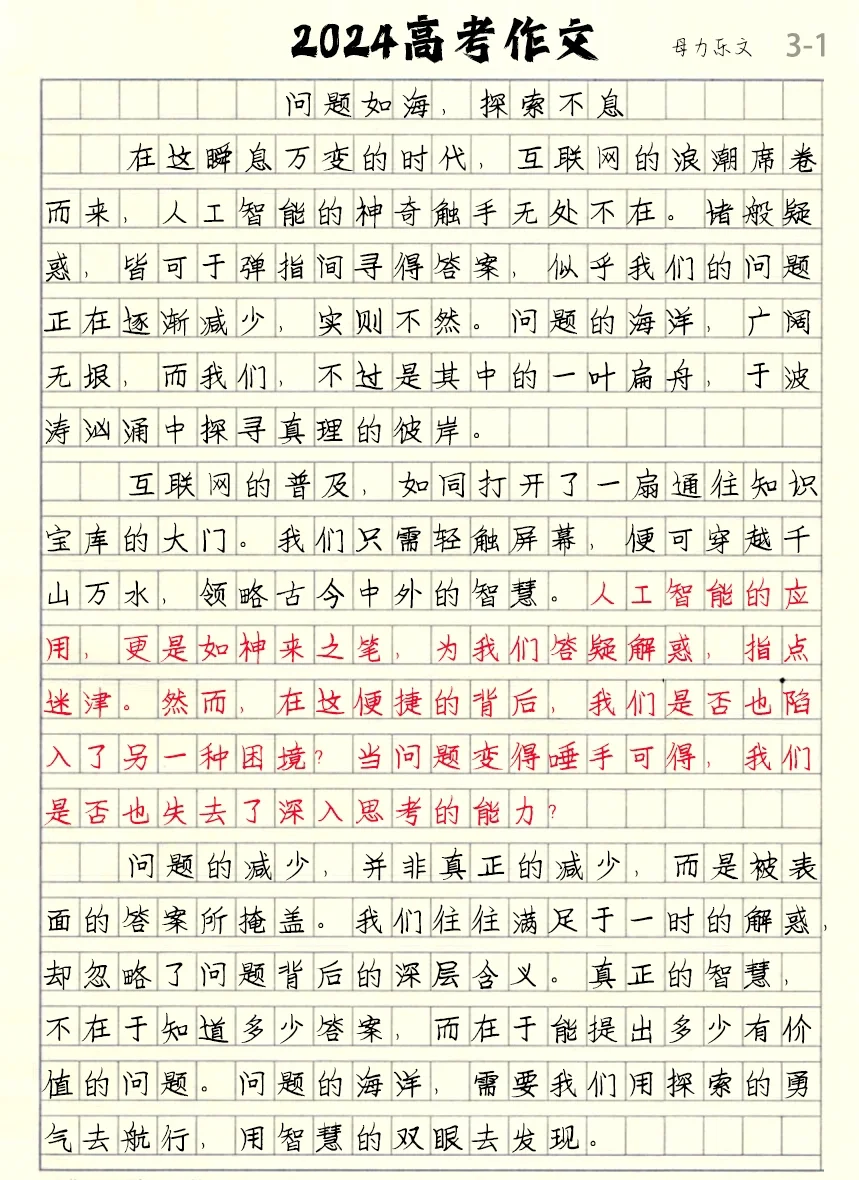 2024高考作文
母力乐文 3-1
问题如海，探索不息
在这瞬息万变的时代，互联网的浪潮席卷
而来，人工智能的神奇触手无处不在。诸般疑
惑，皆可于弹指间寻得答案，似乎我们的问题
正在逐渐减少，实则不然。问题的海洋，广阔
无垠，而我们，不过是其中的一叶扁舟，于波
涛汹涌中探寻真理的彼岸。
互联网的普及，如同打开了一扇通往知识
宝库的大门。我们只需轻触屏幕，便可穿越千
山万水，领略古今中外的智慧。人工智能的应
用，更是如神来之笔，为我们答疑解惑，指点
迷津。然而，在这便捷的背后，我们是否也陷
入了另一种困境？当问题变得唾手可得，我们
是否也失去了深入思考的能力？
问题的减少，并非真正的减少，而是被表
面的答案所掩盖。我们往往满足于一时的解惑，
却忽略了问题背后的深层含义。真正的智慧，
不在于知道多少答案，而在于能提出多少有价
值的问题。问题的海洋，需要我们用探索的勇
气去航行，用智慧的双眼去发现。